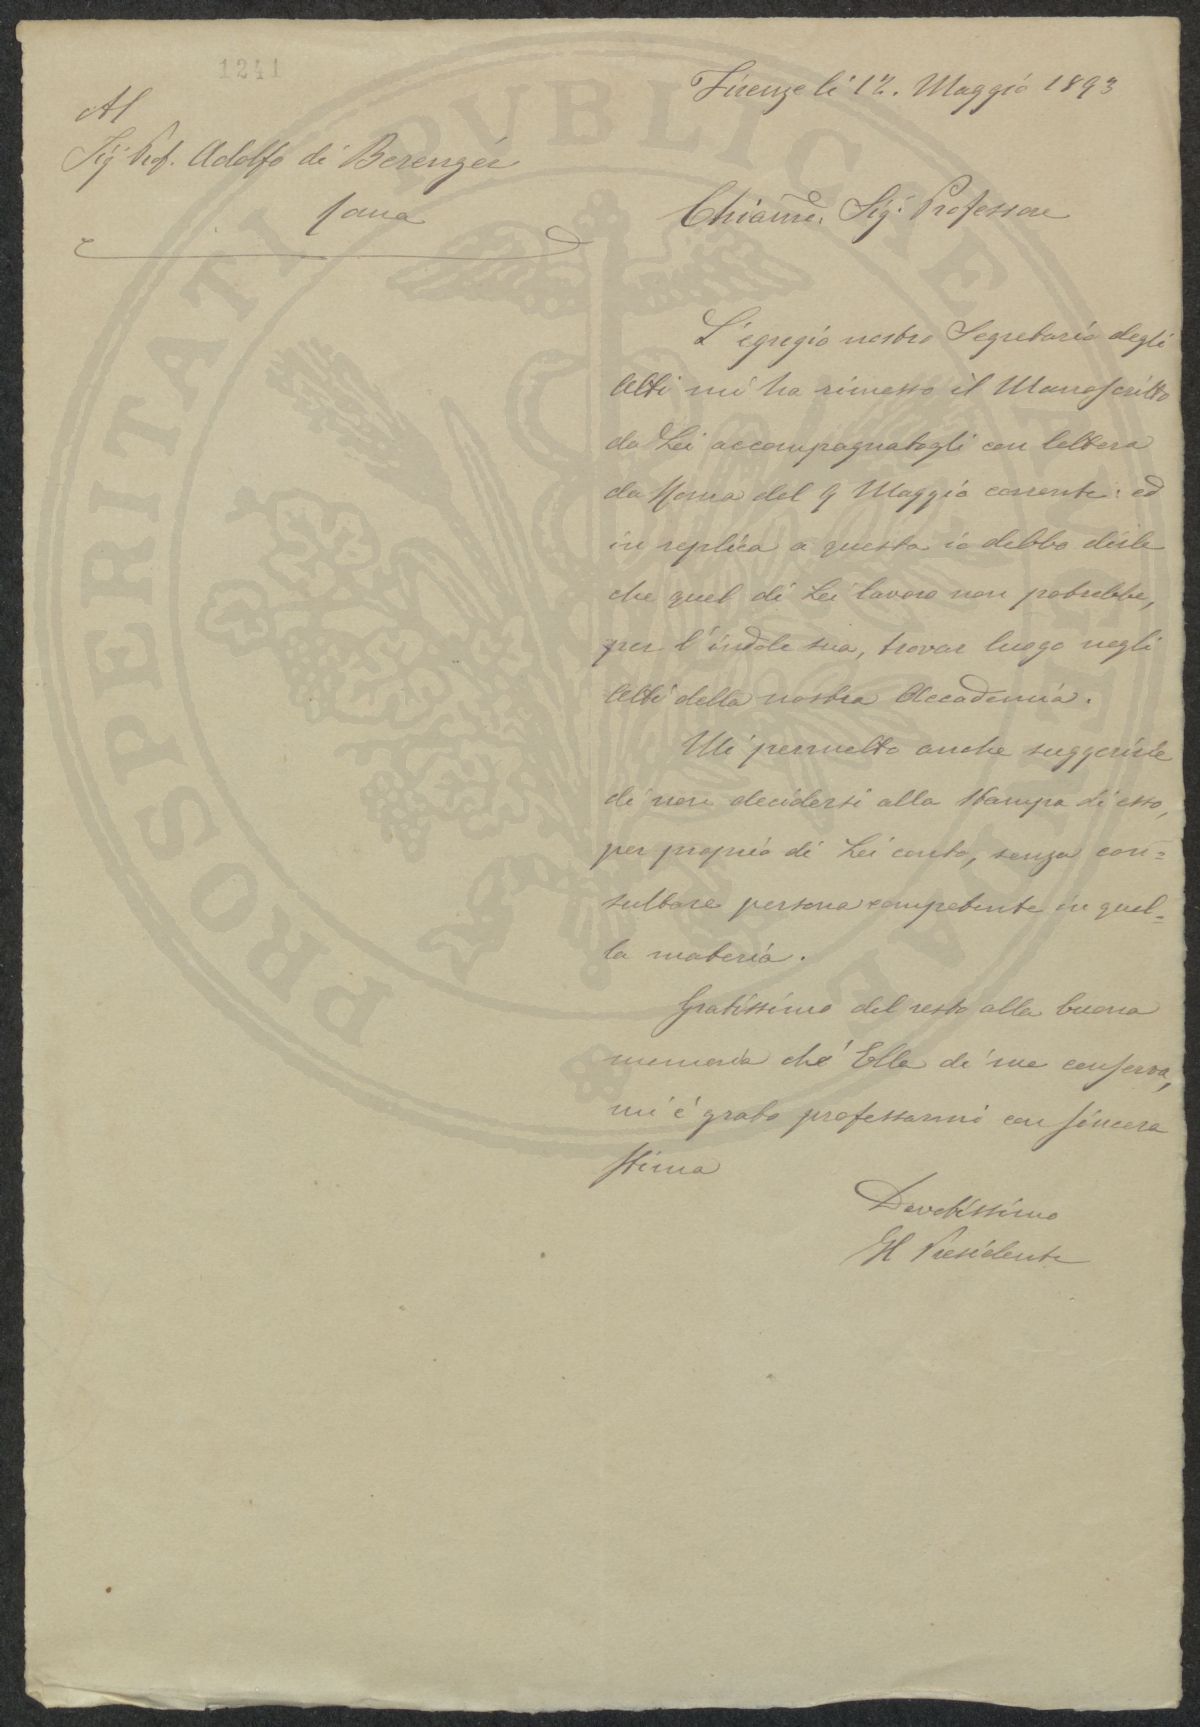 1241
Firenze li 12. Maggio 1893
Al
Sigr Prof. Adolfo di Berenger
Roma
Chiarmo. Sigr Professore
L'egregio nostro Segretario degli
Atti mi ha rimesso il Manoscritto
da Lei accompagnatogli con lettera
da Roma del 9 Maggio corrente: ed
in replica a questa io debbo dirle
che quel di Lei lavoro non potrebbe,
per l'indole sua, trovar luogo negli
Atti della nostra Accademia.
Mi permetto anche suggerirle
di non decidersi alla stampa di esso,
per proprio di Lei conto, senza con=
sultare persona competente in quel=
la materia.
Gratissimo del resto alla buona
memoria che Ella di me conserva,
mi è grato professarmi con sincera
stima
Devotissimo
Il Presidente
PROSPERITATI PVBLICAE AVGENDAE